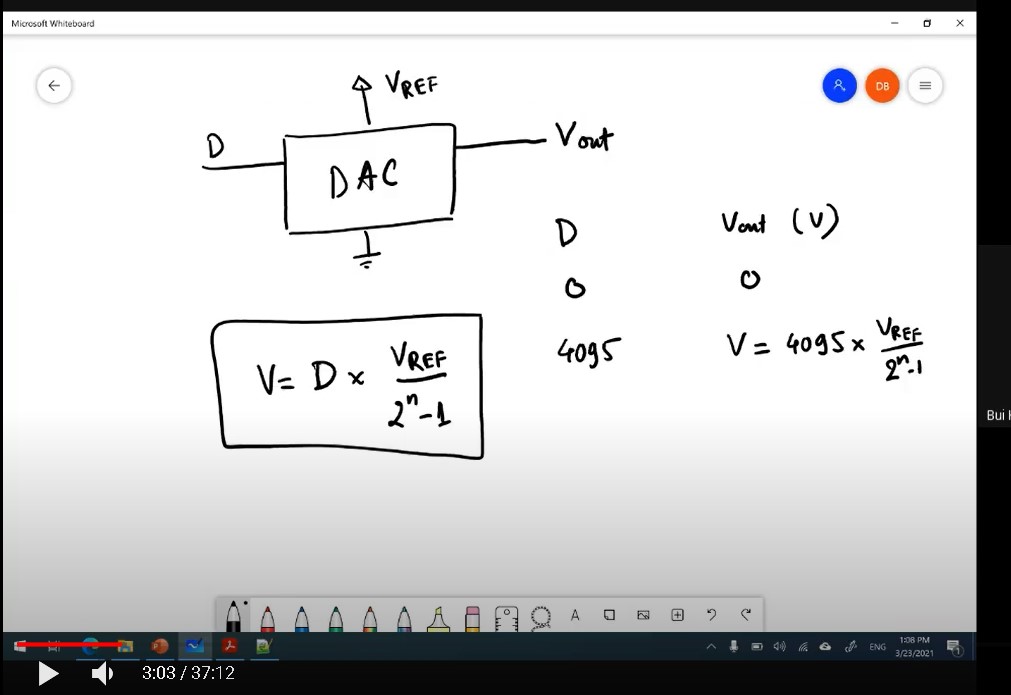 Microsoft Whiteboard
DB
VREF
D
DAC
Vout
D
Vout (V)
0
0
4095
V = 4095 × VREF / 2ⁿ-1
V = D × VREF / 2ⁿ-1
Bui
A
ENG
1:08 PM
3/23/2021
1
3:03 / 37:12